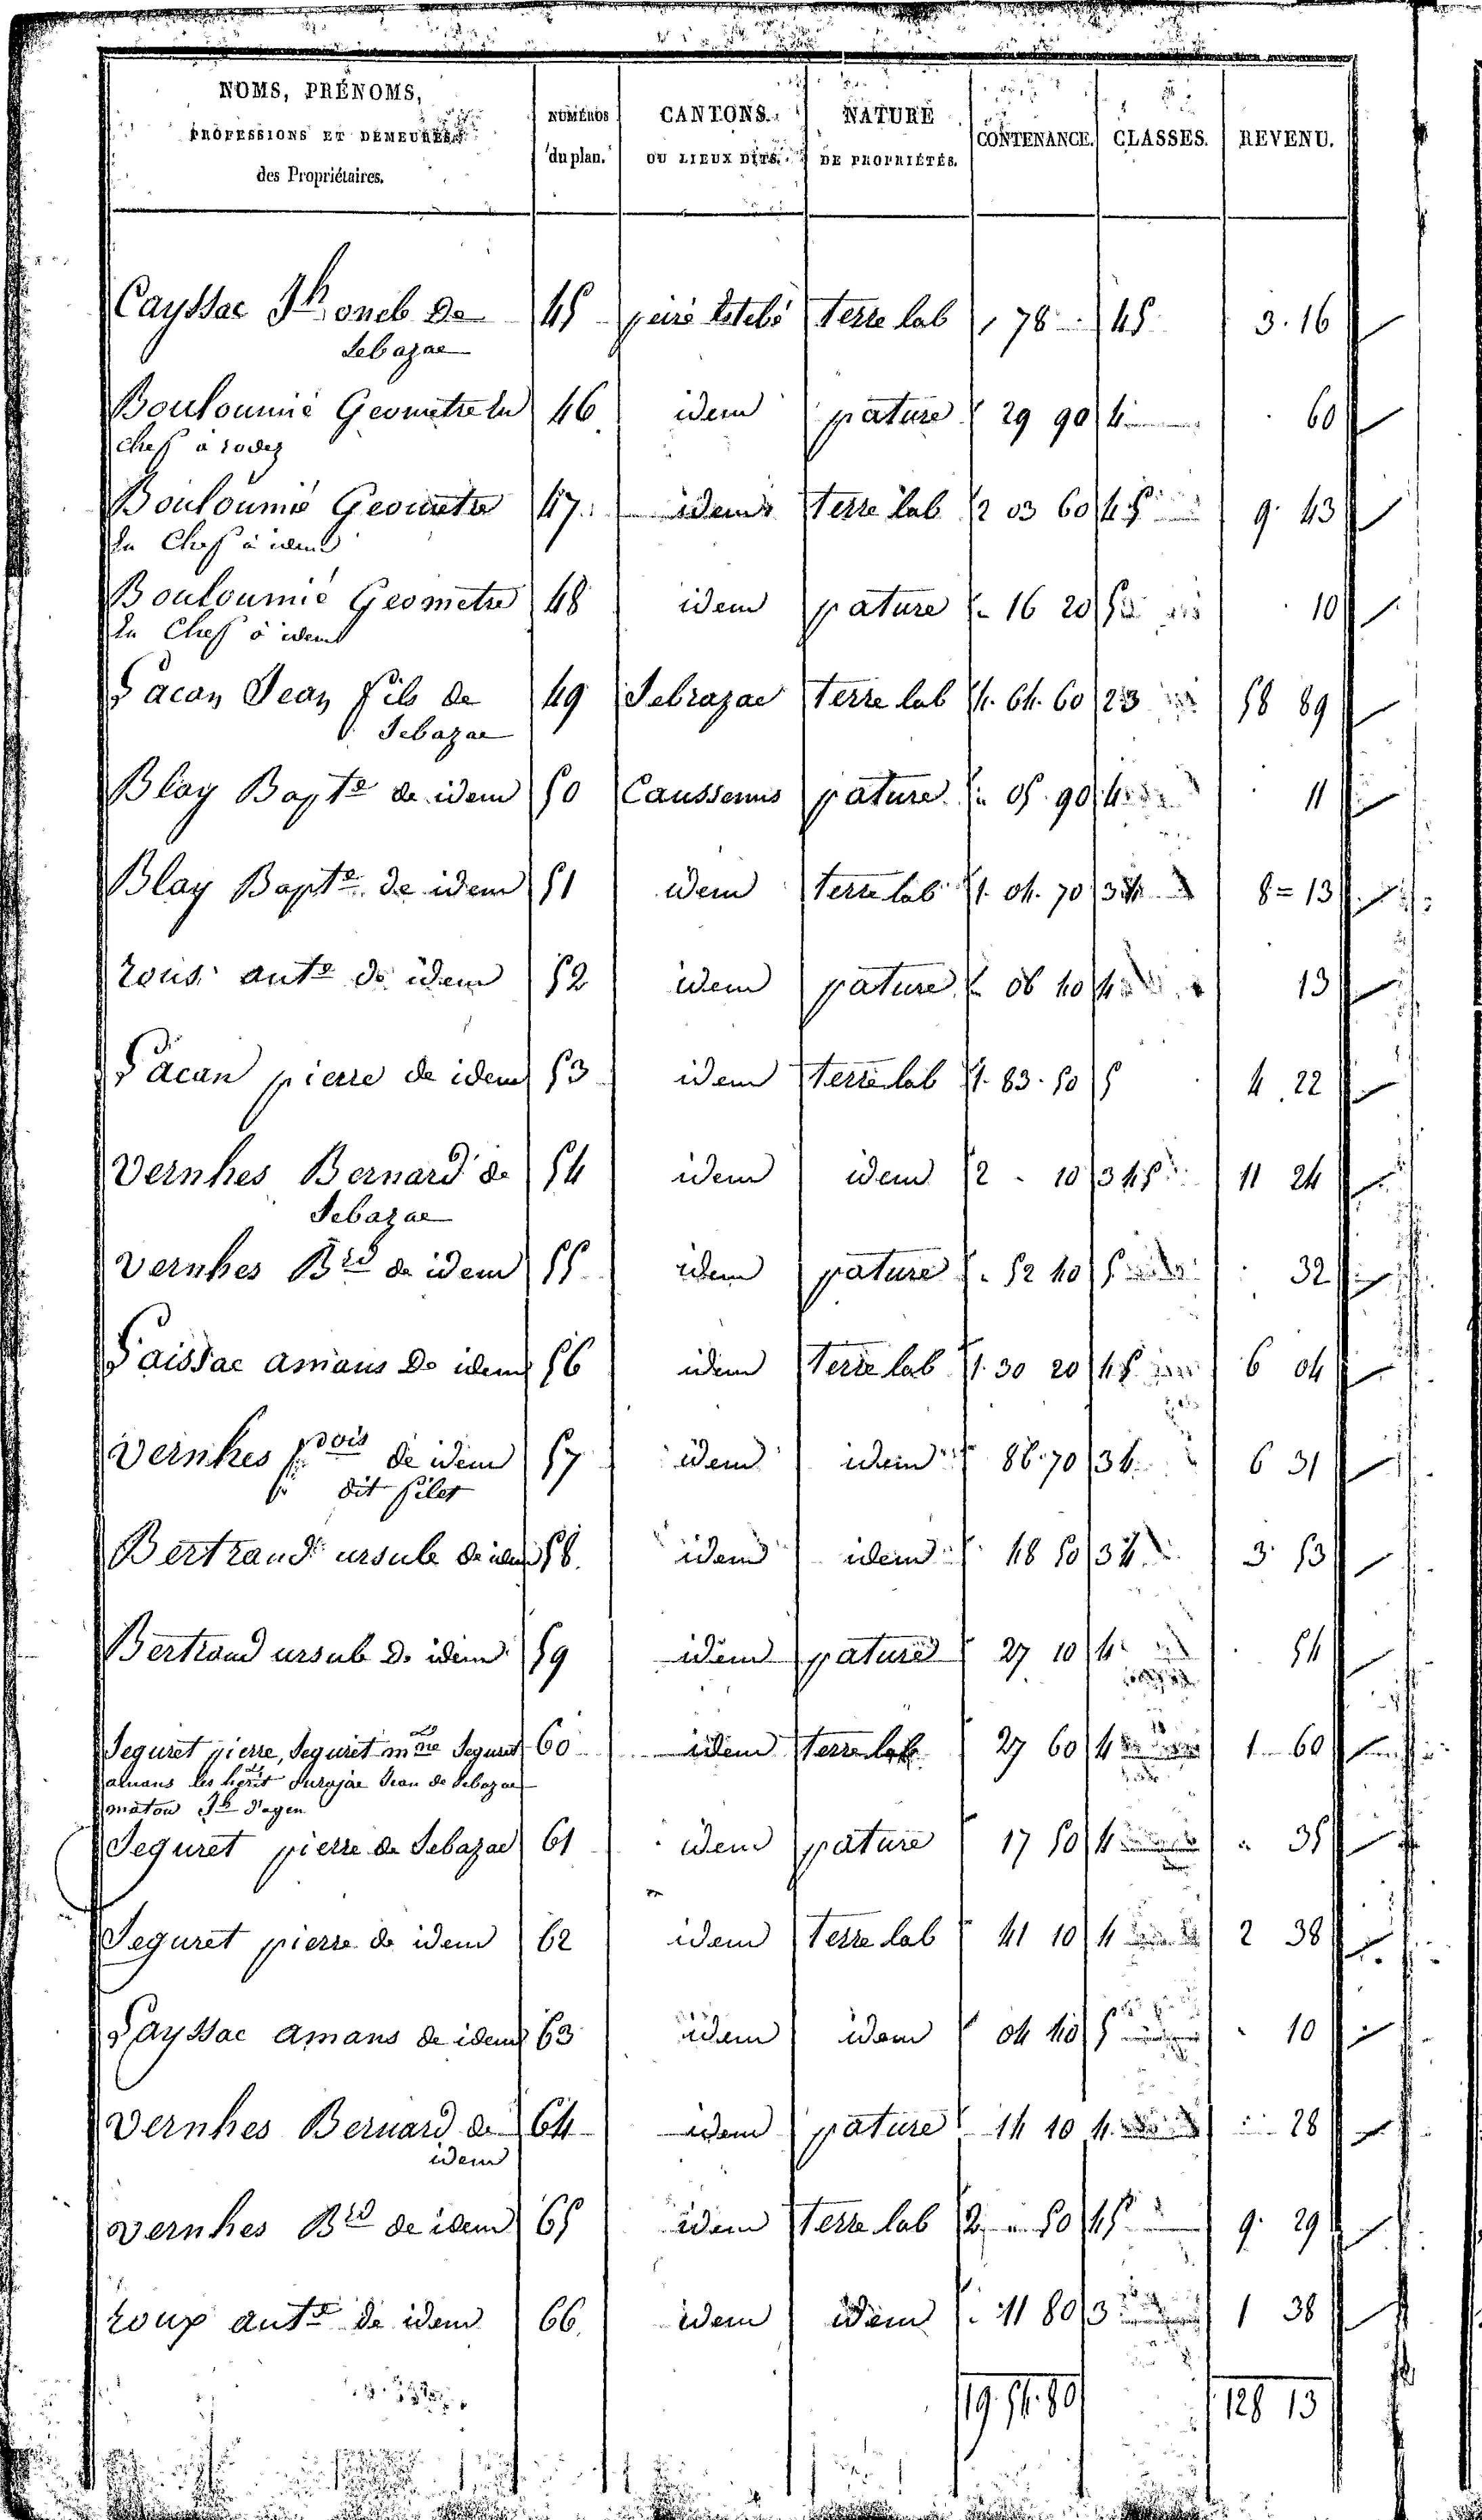 NOMS, PRÉNOMS,
PROFESSIONS ET DEMEURES
des Propriétaires.
NUMÉROS
du plan.
CANTONS
OU LIEUX DITS.
NATURE
DE PROPRIÉTÉS.
CONTENANCE.
CLASSES.
REVENU.
Cayssac Jh oncle de 45 terre lab 78 45 3. 16
Sebazac
Bouloumié Geometre en 46 idem pature 29 90 4 60
chef à rodez
Bouloumié Geometre 47 idem terre lab 2 03 60 45 9. 43
En Chef à idem
Bouloumié Geometre 48 idem pature 16 20 5 10
En Chef à idem
Jean fils de 49 Sebrazac terre lab 4. 64. 60 23 58 89
Sebazac
Blay Bapte de idem 50 pature 05. 90 4 11
Blay Bapte de idem 51 idem terre lab 1. 04. 70 34 8 = 13
rous ante de idem 52 idem pature 06 40 4 13
pierre de idem 53 idem terre lab 1. 83. 50 5 4. 22
Vernhes Bernard de 54 idem idem 2 - 10 345 11 24
Sebazac
vernhes Brd de idem 55 idem pature 52 40 5 32
amans de idem 56 idem terre lab 1. 30 20 45 6 04
Vernhes fcois de idem 57 idem idem 86. 70 34 6 31
dit filet
Bertrand ursule de idem 58. idem idem 48 50 34 3. 53
Bertrand ursule de idem 59 idem pature 27 10 4 54
Seguret pierre, Seguret Seguret 60 idem terre lab 27 60 4 1 60
amans les Jean de Sebazac
Jh
Seguret pierre de Sebazac 61 idem pature 17 50 4 35
Seguret pierre de idem 62 idem terre lab 41 10 4 2 38
amans de idem 63 idem idem 04 40 5 10
Vernhes Bernard de 64 idem pature 14 10 4 28
idem
vernhes Brd de idem 65 idem terre lab 2 " 50 45 9. 29
roux ante de idem 66 idem idem 11 80 3 1 38
19. 54. 80 128 13